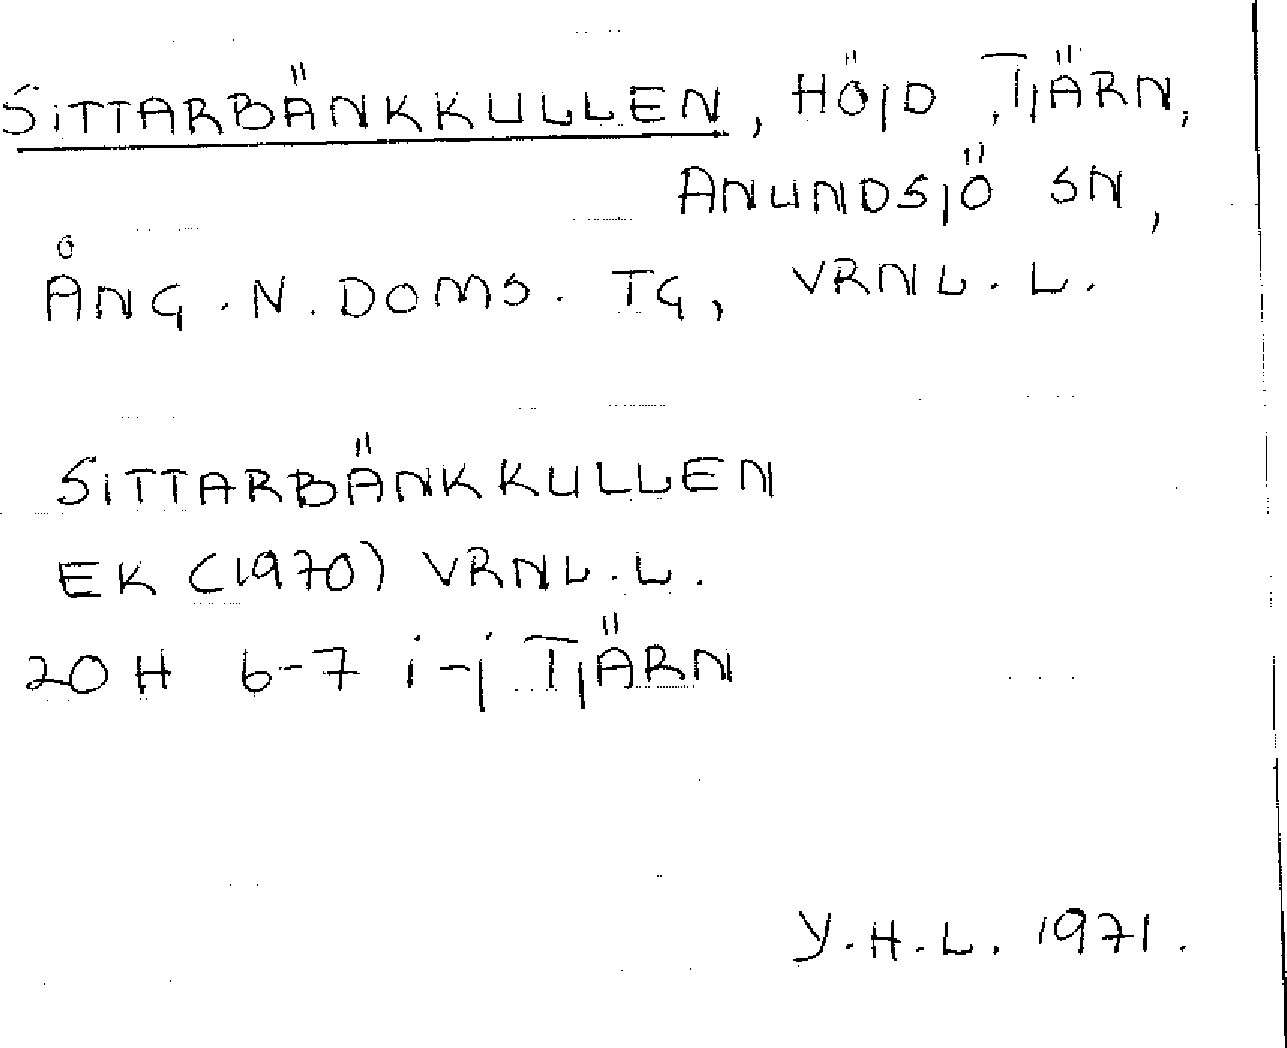 SITTARBÄNKKULLEN, HÖJD, TJÄRN,
ANUNDSJÖ SN,
ÅNG. N. DOMS. TG, VRNL. L.
SITTARBÄNKKULLEN
EK (1970) VRNL. L.
20 H 6-7 i-j TJÄRN
Y. H. L. 1971.